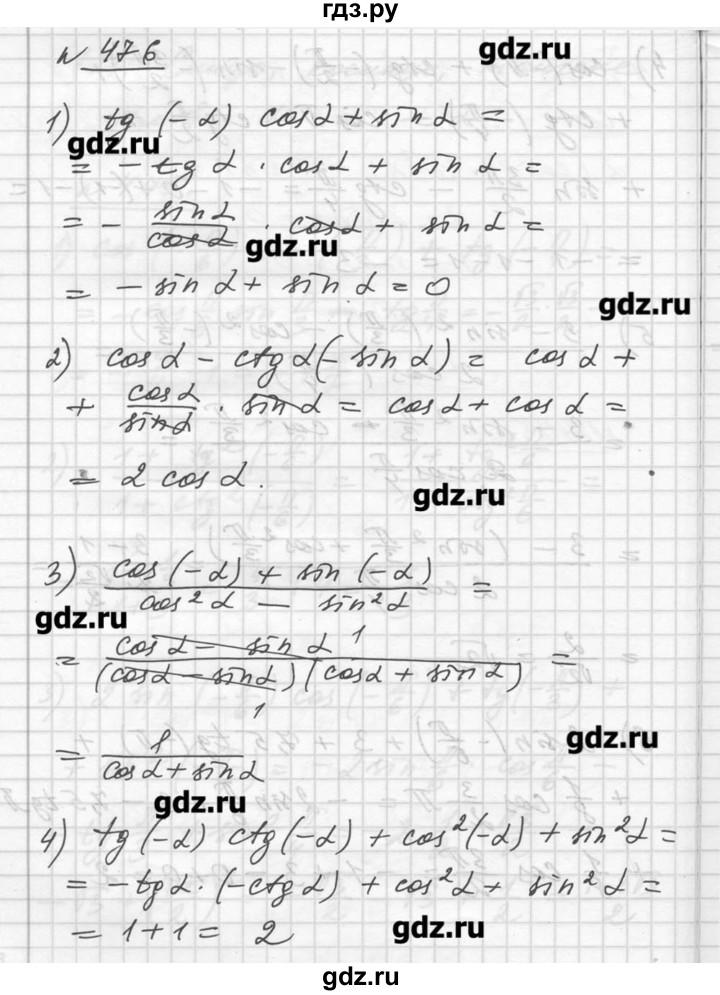 гдз.ру
№ 476
gdz.ru
1) tg (-α) cos α + sin α =
gdz.ru
= - tg α · cos α + sin α =
= - sin α / cos α · cos α + sin α =
gdz.ru
= - sin α + sin α = 0
gdz.ru
2) cos α - ctg α (- sin α) = cos α +
+ cos α / sin α · sin α = cos α + cos α =
= 2 cos α.
gdz.ru
3) cos (-α) + sin (-α) / cos² α - sin² α =
gdz.ru
= cos α - sin α 1 / (cos α - sin α) (cos α + sin α) 1 =
gdz.ru
= 1 / cos α + sin α
gdz.ru
4) tg (-α) ctg (-α) + cos² (-α) + sin² α =
= - tg α · (- ctg α) + cos² α + sin² α =
= 1 + 1 = 2
gdz.ru
гдз.ру